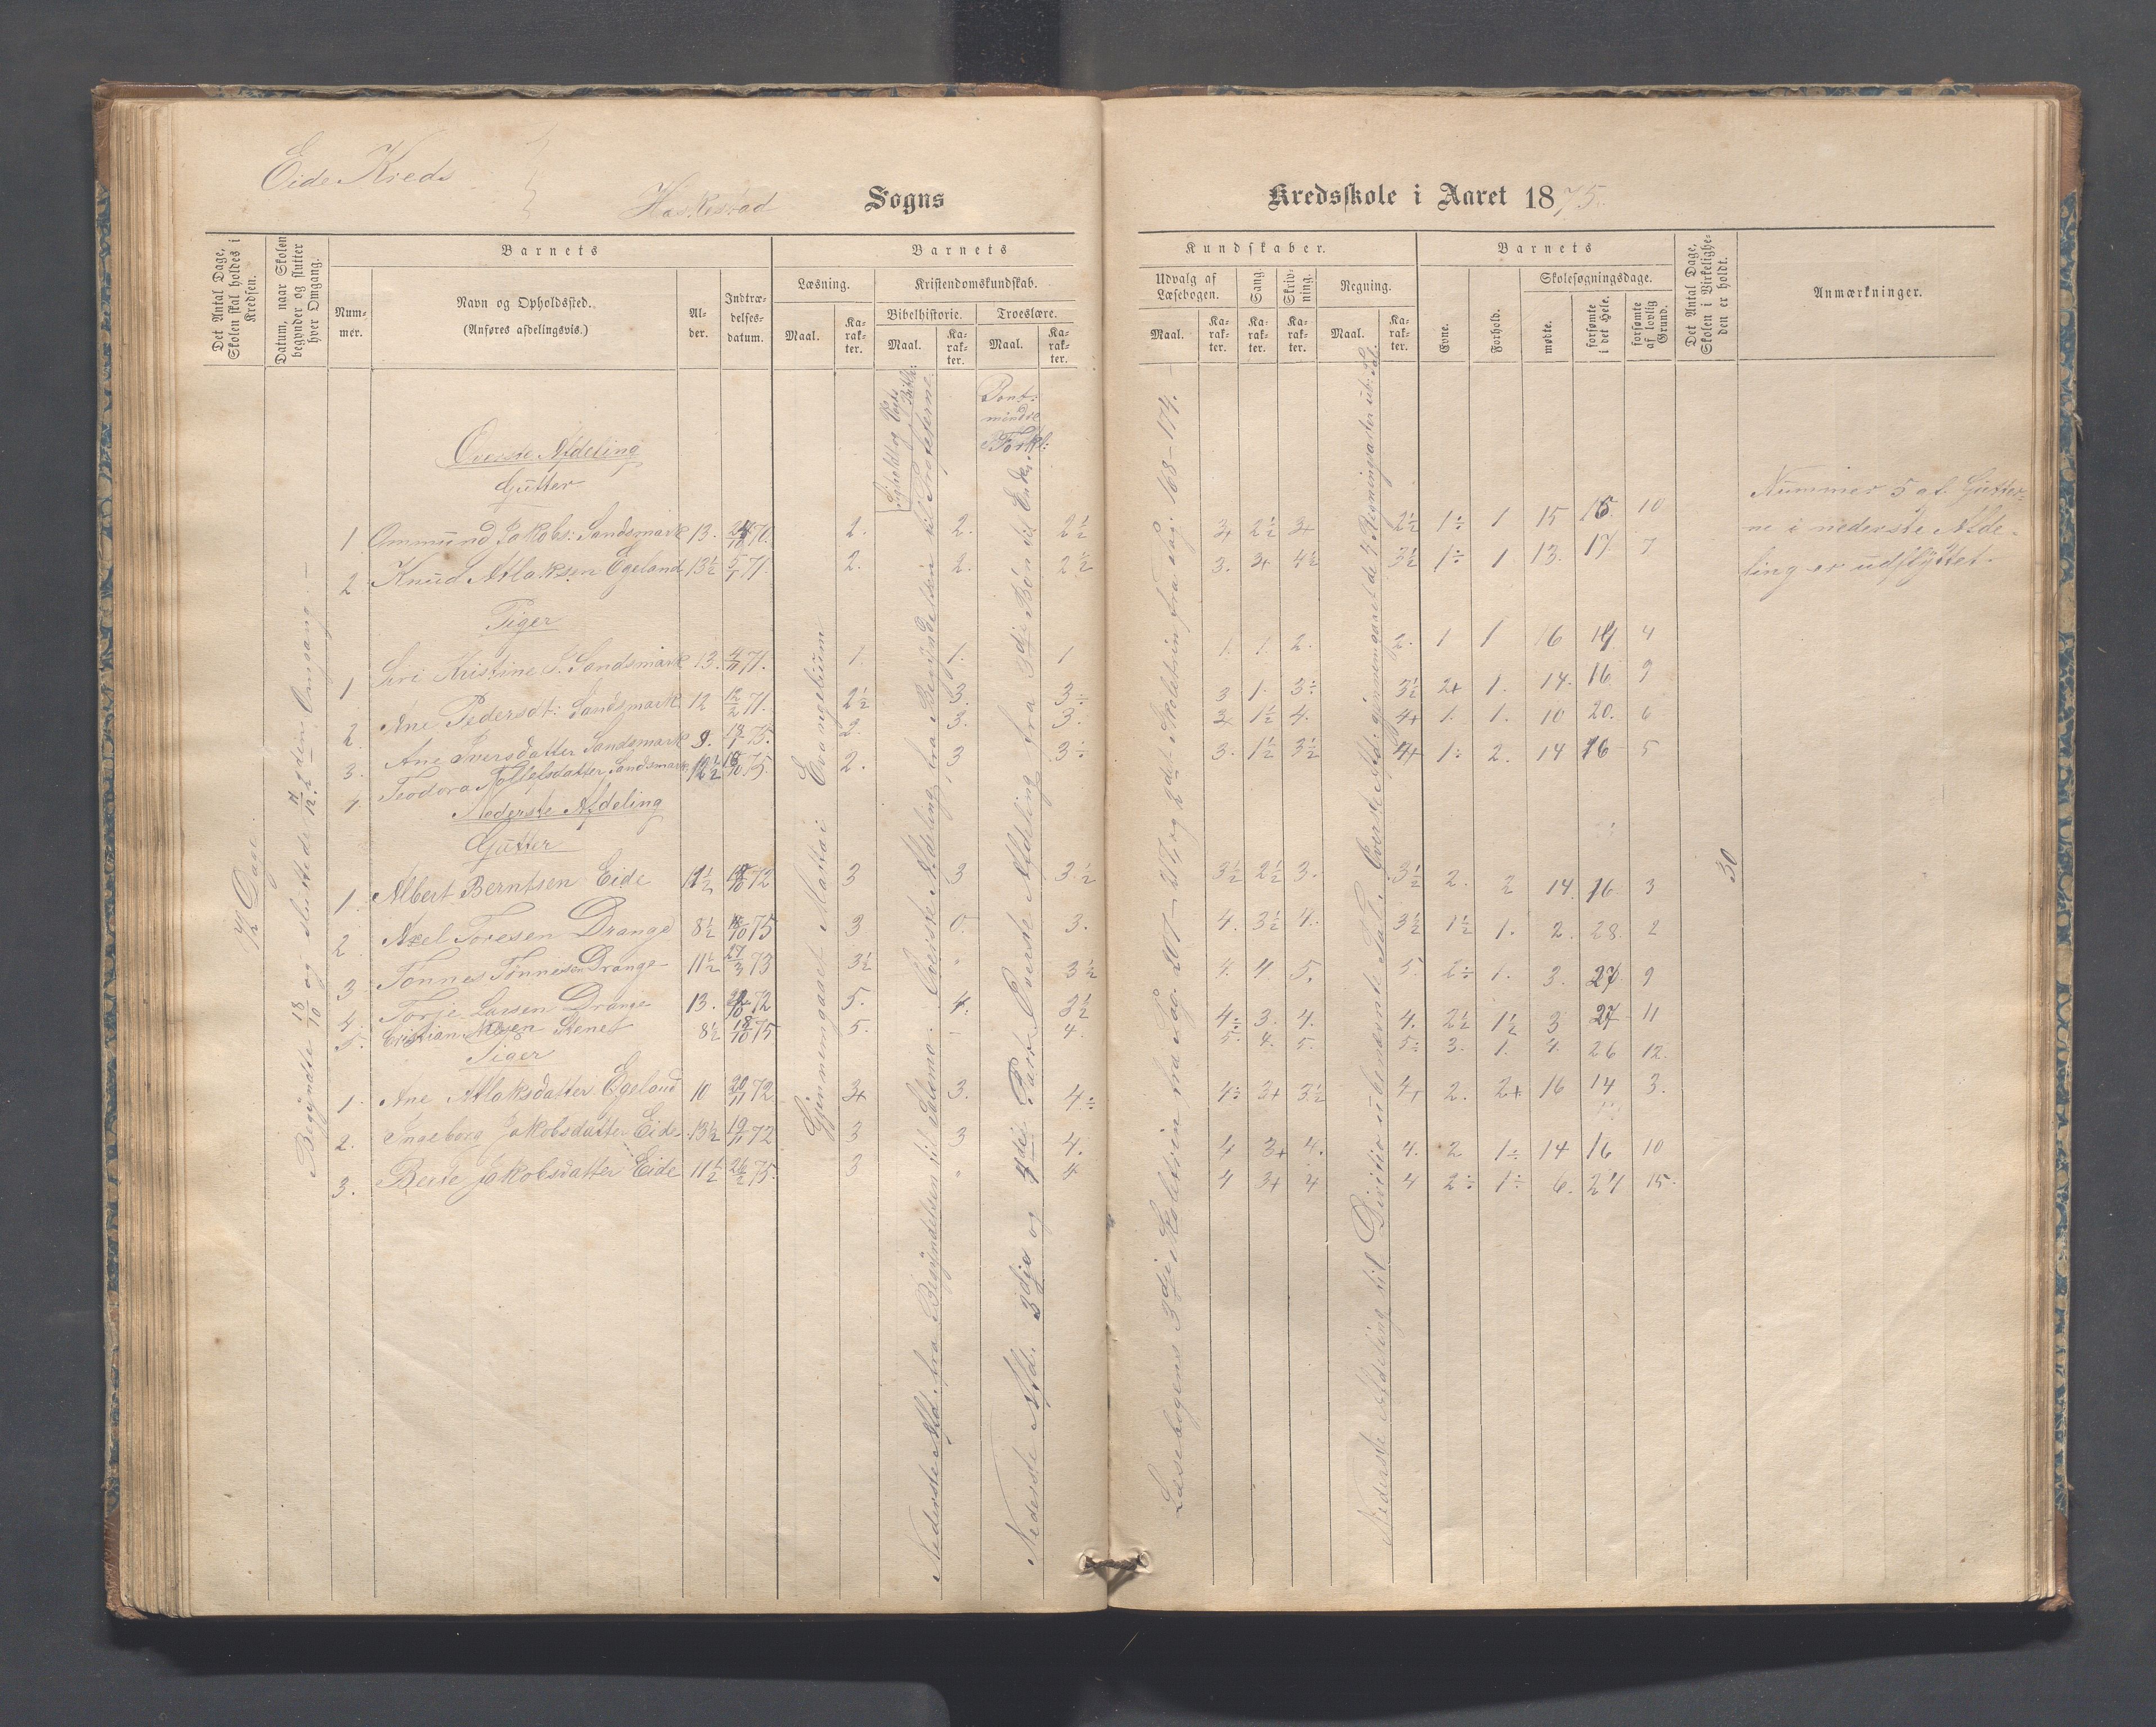 Eide Kreds
Haskestad Sogns Kredsskole i Aaret 1875.
Det Antal Dage, Skolen skal holdes i Kredsen.
Datum, naar Skolen begynder og slutter hver Omgang.
Barnets
Nummer.
Navn og Opholdssted.
(Anføres afdelingsvis.)
Alder.
Indtrædelsesdatum.
Barnets
Læsning.
Maal.
Karakter.
Kristendomskundskab.
Bibelhistorie.
Maal.
Karakter.
Troeslære.
Maal.
Karakter.
Kundskaber.
Udvalg af Læsebogen.
Maal.
Karakter.
Sang.
Karakter.
Skrivning.
Karakter.
Regning.
Maal.
Karakter.
Barnets
Evne.
Forhold.
Skolesøgningsdage.
mødte.
forsømte i det Hele.
forsømte af lovlig Grund.
Det Antal Dage, Skolen i Virkeligheden er holdt.
Anmærkninger.
72 Dage.
Begyndte 18/10 og sluttede
Gjennemgaaet Mattæi Evangelium
Øverste Afdeling fra Begyndelsen til Profeterne.
Nederste Afd. fra Begyndelsen til Salomo.
Øverste Afdeling fra 3die Bøn til Enden.
Nederste Afd. 3dje og 4de Part
Læsebogens 3die Skoletrin fra Pag. 207-217, og 2det Skoletrin fra Pag. 168-174.
Nederste Afdeling til Division ubenævnte Tal.
30
Øverste Afdeling
Gutter
1 Ommund Jakobs: Sandsmark 13. 70. 2. 2. 2½ 3+ 2½ 3+ 2½ 1÷ 1 15 15 10
2 Knud Atlaksen Egeland 13½ 5/7 71. 2. 2. 2½ 3. 3+ 4½ 3½ 1÷ 1 13. 17 7
Piger
1 Siri Kristine S. Sandsmark 13. 4/11 71. 1. 1. 1 1. 1. 2. 2. 1 1 16 14 4
2. Ane Pedersdt: Sandsmark 12 12/2 71. 2½ 3. 3÷ 3 1. 3÷ 3½ 2+ 1. 14. 16 9
3. Ane Iversdatter Sandsmark 9. 75. 2. 3. 3. 3+ 1½ 4. 4+ 1. 1. 10 20. 6
4. Teodora Tollefsdatter Sandsmark 75. 2. 3 3÷ 3. 1½ 3½ 4+ 1÷ 2. 14 16 5
Nederste Afdeling
Gutter
1. Albert Berntsen Eide 11½ 72 3 3 3½ 3½ 2½ 3. 3½ 2. 2 14. 16 3
2 Axel Toresen Drange 8½ 75 3 0. 3. 4. 3½ 4. 3½ 1½ 1. 2. 28. 2
3 Tønnes Tønnesen Drange 11½ 27/3 73 3½ " 3½ 4. 4. 5. 5. 2÷ 1. 3. 27 9
4. Torje Larsen Drange 13. 72 5. 4. 3½ 4÷ 3. 4. 4. 2½ 1½ 3 27 11
5. Cristian Stenet 8½ 18/10 75 5. - 4. 5. 4. 5. 5÷ 3. 1. 4. 26 12.
Piger
1. Ane Atlaksdatter Egeland 10 20/11 72 3+ 3. 4÷ 4÷ 3+ 3½ 4+ 2. 2+ 16 14 3.
2. Ingeborg Jakobsdatter Eide 13½ 19/11 72 3 3 4. 4 3+ 4. 4. 2 1÷ 14 16 10
3. Berte Jakobsdatter Eide 11½ 26/2 75. 3 " 4 4 3+ 4 4 2÷ 1÷ 6. 24 15.
Nummer 5 af Gutter-
ne i nederste Afde-
ling er udflyttet.